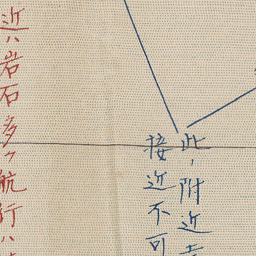 此ノ附近
接近不可
近ハ岩石多ク航行ハ